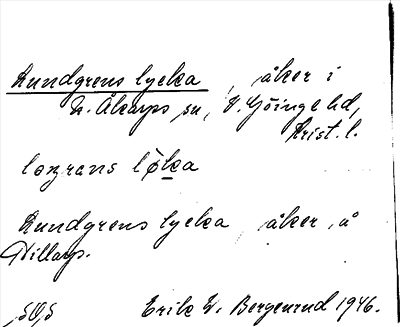 Lundgrens lycka, åker i
N. Åkarps sn, V. Göinge hd,
Krist. l.
lɷŋrans lø̀ka
Lundgrens lycka, åker, å
Hillarp.
Erik W. Bergenrud 1946.